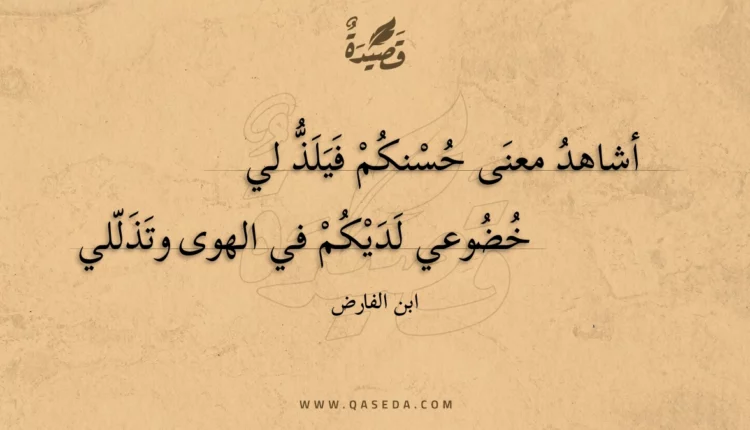 قَصِيدَةٌ
أشاهدُ معنَى حُسْنكُمْ فَيَلَذُّ لي
خُضُوعي لَدَيْكُمْ في الهوى وتَذَلّلي
ابن الفارض
WWW.QASEDA.COM